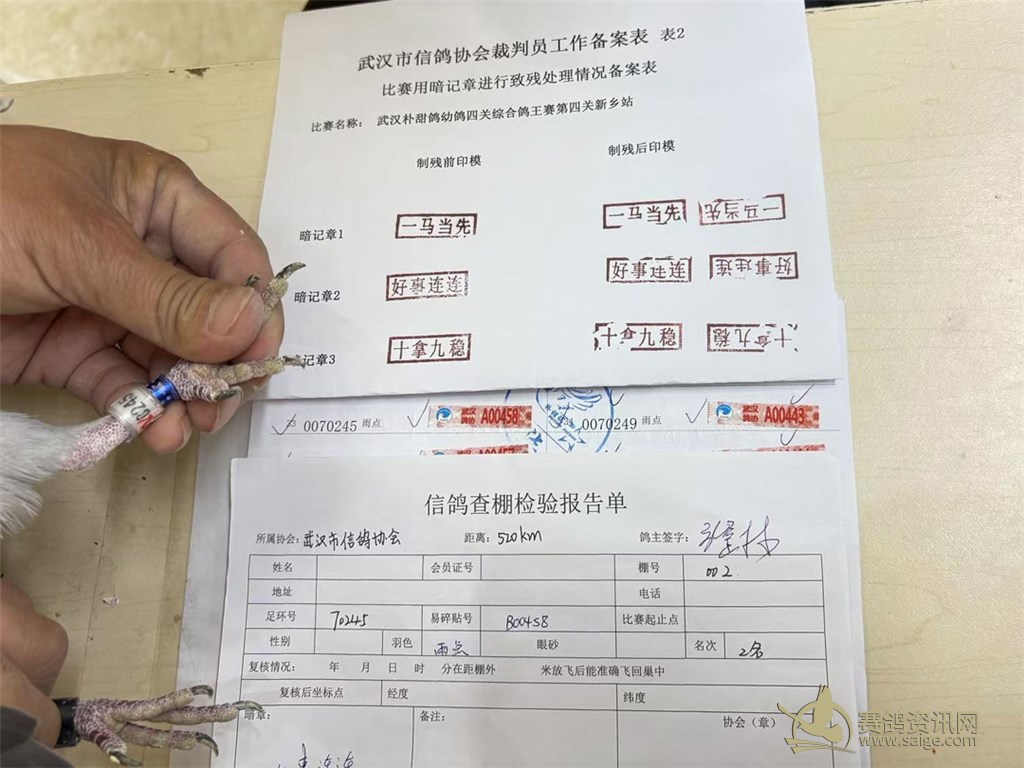 武汉市信鸽协会裁判员工作备案表 表2
比赛用暗记章进行致残处理情况备案表
比赛名称： 武汉朴甜鸽幼鸽四关综合鸽王赛第四关新乡站
制残前印模 制残后印模
暗记章1 一马当先 一马当先 一马当先
暗记章2 好事连连 好事连连 好事连连
记章3 十拿九稳 十拿九稳 十拿九稳
0070245 雨点 武汉鸽协 A00458 0070249 雨点 武汉鸽协 A00443
信鸽查棚检验报告单
所属协会：武汉市信鸽协会 距离：520km 鸽主签字：
姓名 会员证号 棚号 002
地址 电话
足环号 70245 易碎贴号 B00458 比赛起止点
性别 羽色 雨点 眼砂 名次 2名
复核情况： 年 月 日 时 分在距棚外 米放飞后能准确飞回巢中
复核后坐标点 经度 纬度
暗章： 备注： 协会（章）
事连连
赛鸽资讯网
www.saige.com